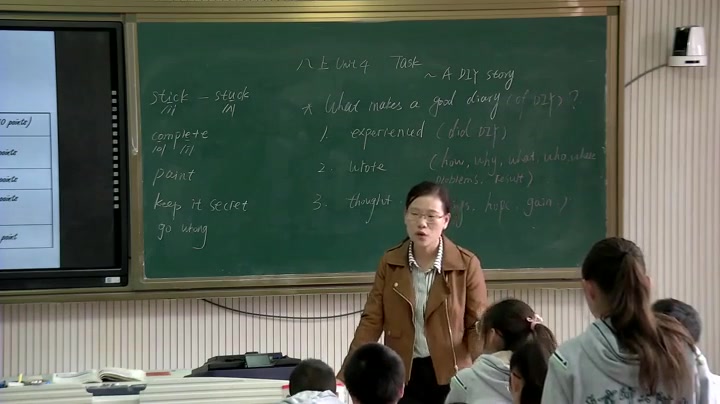 0 points)
points
points
points
point
八上 Unit 4 Task
~ A DIY story
stick — stuck
/ɪ/ /ʌ/
complete
/ə/ /iː/
paint
keep it secret
go wrong
* What makes a good diary (of DIY)?
1. experienced (did DIY)
2. wrote (how, why, what, who, where
problems, result)
3. thought hope, gain.)